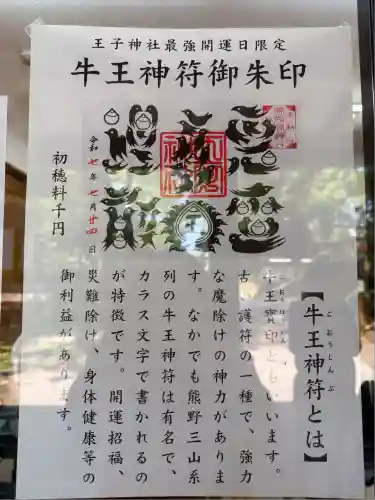 王子神社最強開運日限定
牛王神符御朱印
令和七年七月廿四日
初穂料千円
【牛王神符とは】
ごおうしんぷ
牛王寶印ともいいます。
古い護符の一種で、強力
な魔除けの神力がありま
す。なかでも熊野三山系
列の牛王神符は有名で、
カラス文字で書かれるの
が特徴です。開運招福、
災難除け、身体健康等の
御利益があります。